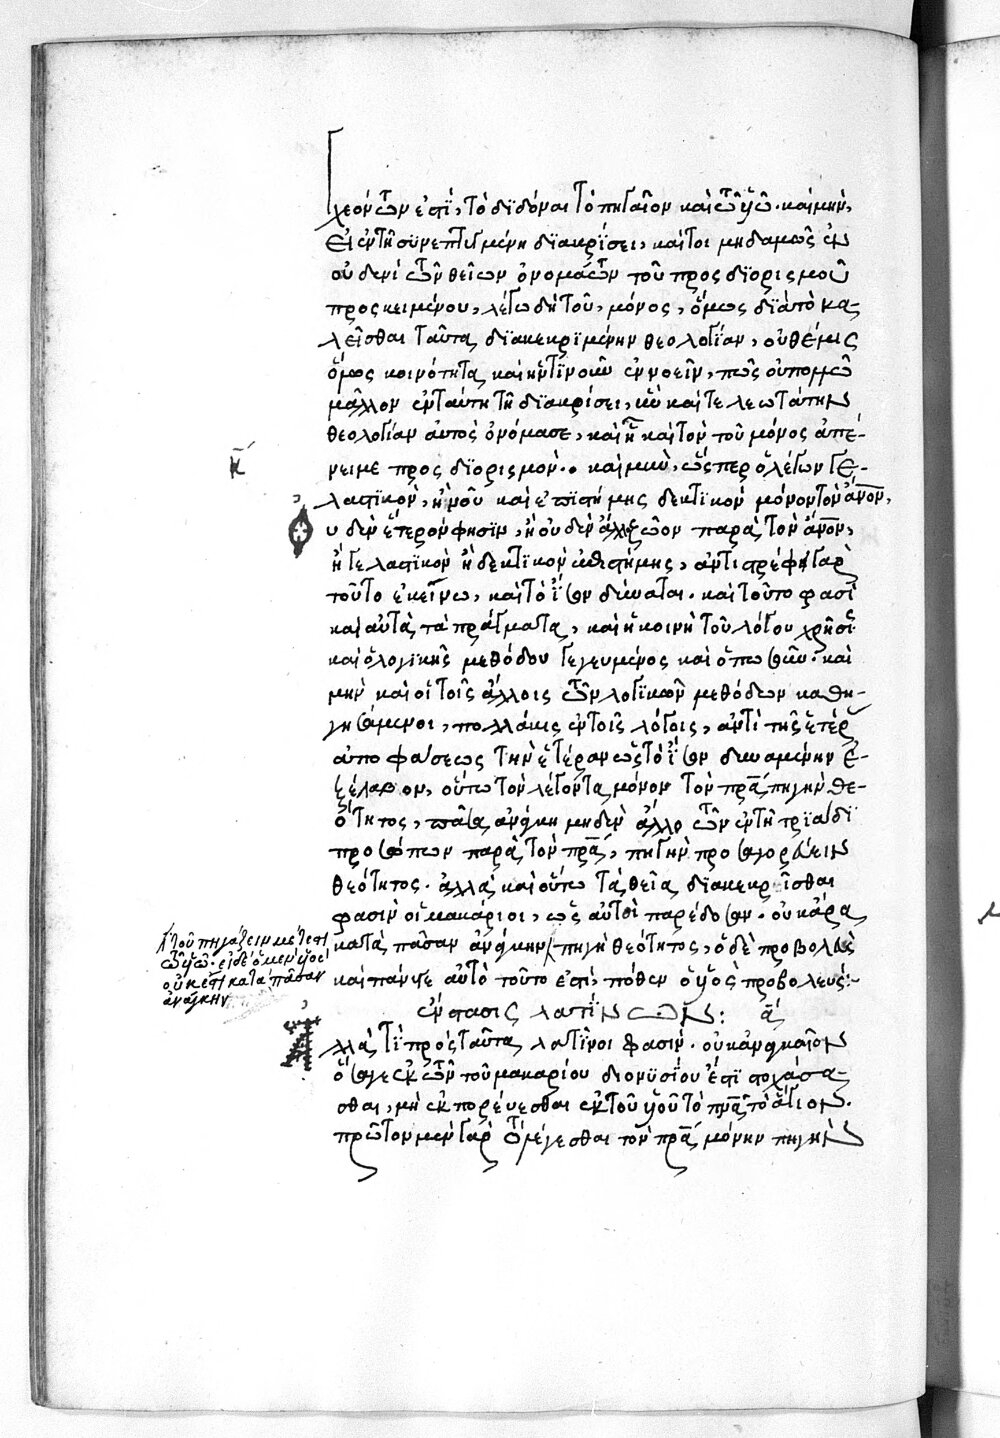 χεόντων ἐστὶ, τὸ διδόναι τὸ πηγαῖον καὶ τῷ υἱῷ. καὶ μὴν,
εἰ ἐν τῇ συνεπτυγμένῃ διακρίσει, καίτοι μηδαμῶς ἐν
οὐδενὶ τῶν θείων ὀνομάτων τοῦ προσδιορισμοῦ
προσκειμένου, λέγω δὴ τοῦ, μόνος, ὅμως διὰ τὸ κα-
λεῖσθαι ταῦτα διακεκριμένην θεολογίαν, οὐ θέμις
ὅμως κοινότητα καὶ ἡντινοῦν ἐννοεῖν, πῶς οὐ πολλῷ
μᾶλλον ἐν ταύτῃ τῇ διακρίσει, ἣν καὶ τελεωτάτην
θεολογίαν αὐτὸς ὀνόμασε, καὶ ᾗ καὶ τὸν τοῦ μόνος ἀπέ-
νειμε προσδιορισμόν. καὶ μὴν, ὥσπερ ὁ λέγων γε-
λαστικὸν, ἢ νοῦ καὶ ἐπιστήμης δεκτικὸν μόνον τὸν ἄνον,
οὐδὲν ἕτερον φησὶν, ἢ οὐδὲν ἄλλο ζῶον παρὰ τὸν ἄνον,
ἢ γελαστικὸν ἢ δεκτικὸν ἐπιστήμης, ἀντιστρέφει γὰρ
τοῦτο ἐκείνῳ, καὶ τὸ ἴσον δύναται. καὶ τοῦτο φασὶ
καὶ αὐτὰ τὰ πράγματα, καὶ ἡ κοινὴ τοῦ λόγου χρῆσις
καὶ ὁ λογικῆς μεθόδου γεγευμένος καὶ ὁπωσοῦν. καὶ
μὴν καὶ οἱ τοῖς ἄλλοις τῶν λογικῶν μεθόδων καθη-
γησάμενοι, πολλάκις ἐν τοῖς λόγοις, ἀντὶ τῆς ἑτέρας
ἀποφάσεως τὴν ἑτέραν ὡς τὸ ἴσον δυναμένην ἐ-
ξέλαβον, οὕτω τὸν λέγοντα μόνον τὸν πρα πηγὴν θε-
ότητος, πᾶσα ἀνάγκη μηδὲν ἄλλο τῶν ἐν τῇ τριάδι
προσώπων παρὰ τὸν πρα, πηγὴν προσαγορεύειν
θεότητος. ἀλλὰ καὶ οὕτω τὰ θεῖα διακεκρίσθαι
φασὶν οἱ μακάριοι, ὡς αὐτοὶ παρέδοσαν. οὐκ ἄρα
κατὰ πᾶσαν ἀνάγκην πηγὴ θεότητος, ὁ δὲ προβολεὺς
καὶ πάντῃ αὐτὸ τοῦτο ἐστὶ, πόθεν ὁ υἱὸς προβολεύς:
τοῦ πηγάζειν μέτεστι
τῷ υἱῷ. εἰ δὲ ὁ μὲν υἱός
οὐκ ἔστι κατὰ πᾶσαν
ἀνάγκην
ἔνστασις λατίνων: α
Ἀλλὰ τί πρὸς ταῦτα λατῖνοι φασὶν. οὐκ ἀναγκαῖον
ὅσον γε ἐκ τῶν τοῦ μακαρίου διονυσίου ἔστι στοχάσα-
σθαι, μὴ ἐκπορεύεσθαι ἐκ τοῦ υἱοῦ τὸ πνα τὸ ἅγιον.
πρῶτον μὲν γὰρ τῷ λέγεσθαι τὸν πρα μόνην πηγὴν